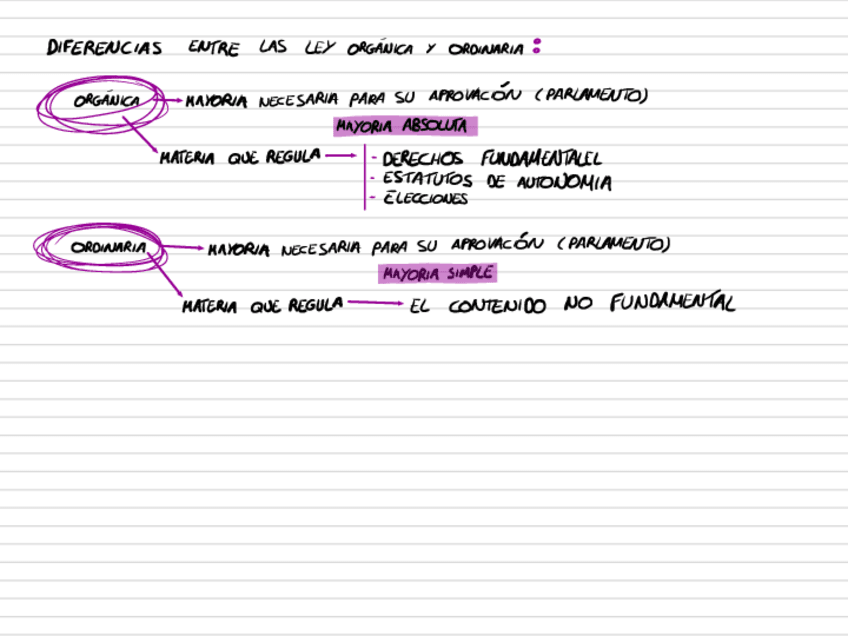 DIFERENCIAS ENTRE LAS LEY ORGÁNICA Y ORDINARIA:
ORGÁNICA → MAYORIA NECESARIA PARA SU APROVACIÓN (PARLAMENTO)
MAYORIA ABSOLUTA
MATERIA QUE REGULA → - DERECHOS FUNDAMENTALEL
- ESTATUTOS DE AUTONOMIA
- ELECCIONES
ORDINARIA → MAYORIA NECESARIA PARA SU APROVACIÓN (PARLAMENTO)
MAYORIA SIMPLE
MATERIA QUE REGULA → EL CONTENIDO NO FUNDAMENTAL